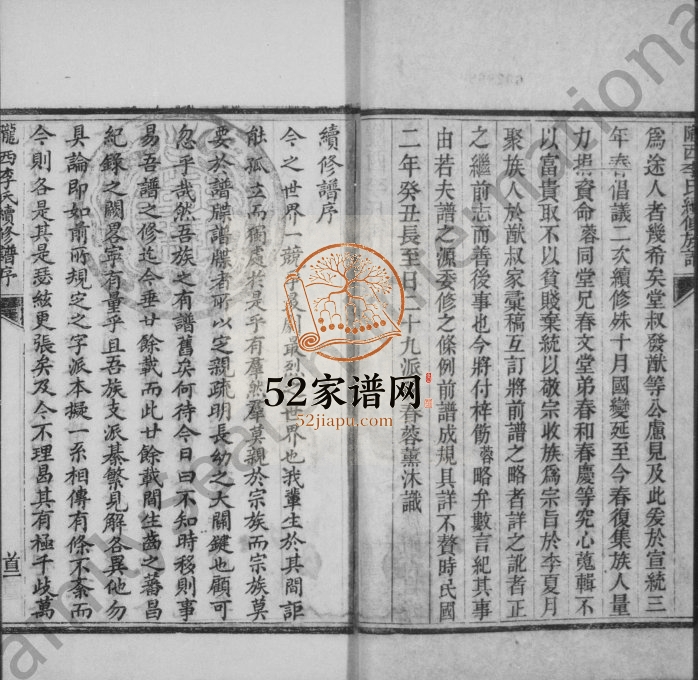 隴西李氏續修族譜
爲途人者幾希矣堂叔發猷等公慮見及此爰於宣統三
年春倡議二次續修殊十月國變延至今春復集族人量
力捐資命蓉同堂兄春文堂弟春和春慶等究心蒐輯不
以富貴取不以貧賤棄統以敬宗收族爲宗旨於季夏月
聚族人於猷叔家彙稿互訂將前譜之略者詳之訛者正
之繼前志而善後事也今將付梓卹蓉略弁數言紀其事
由若夫譜之源委修之條例前譜成規具詳不贅時民國
二年癸丑長至日二十九派 春蓉薰沐識
續修譜序
今之世界一競爭 最烈 世界也我輩生於其間詎
能孤立而獨處於是乎有羣然羣莫親於宗族而宗族莫
要於譜牒譜牒者所以定親疏明長幼之大關鍵也顧可
忽乎哉然吾族之有譜舊矣何待今日曰不知時移則事
易吾譜之修迄今垂廿餘載而此廿餘載間生齒之蕃昌
紀錄之闕畧寧有量乎且吾族支派綦繁見解各異他勿
具論即如前所規定之字派本擬一系相傳有條不紊而
今則各是其是瑟絃更張矣及今不理曷其有極千歧萬
隴西李氏續修譜序
首
52家谱网
52jiapu.com